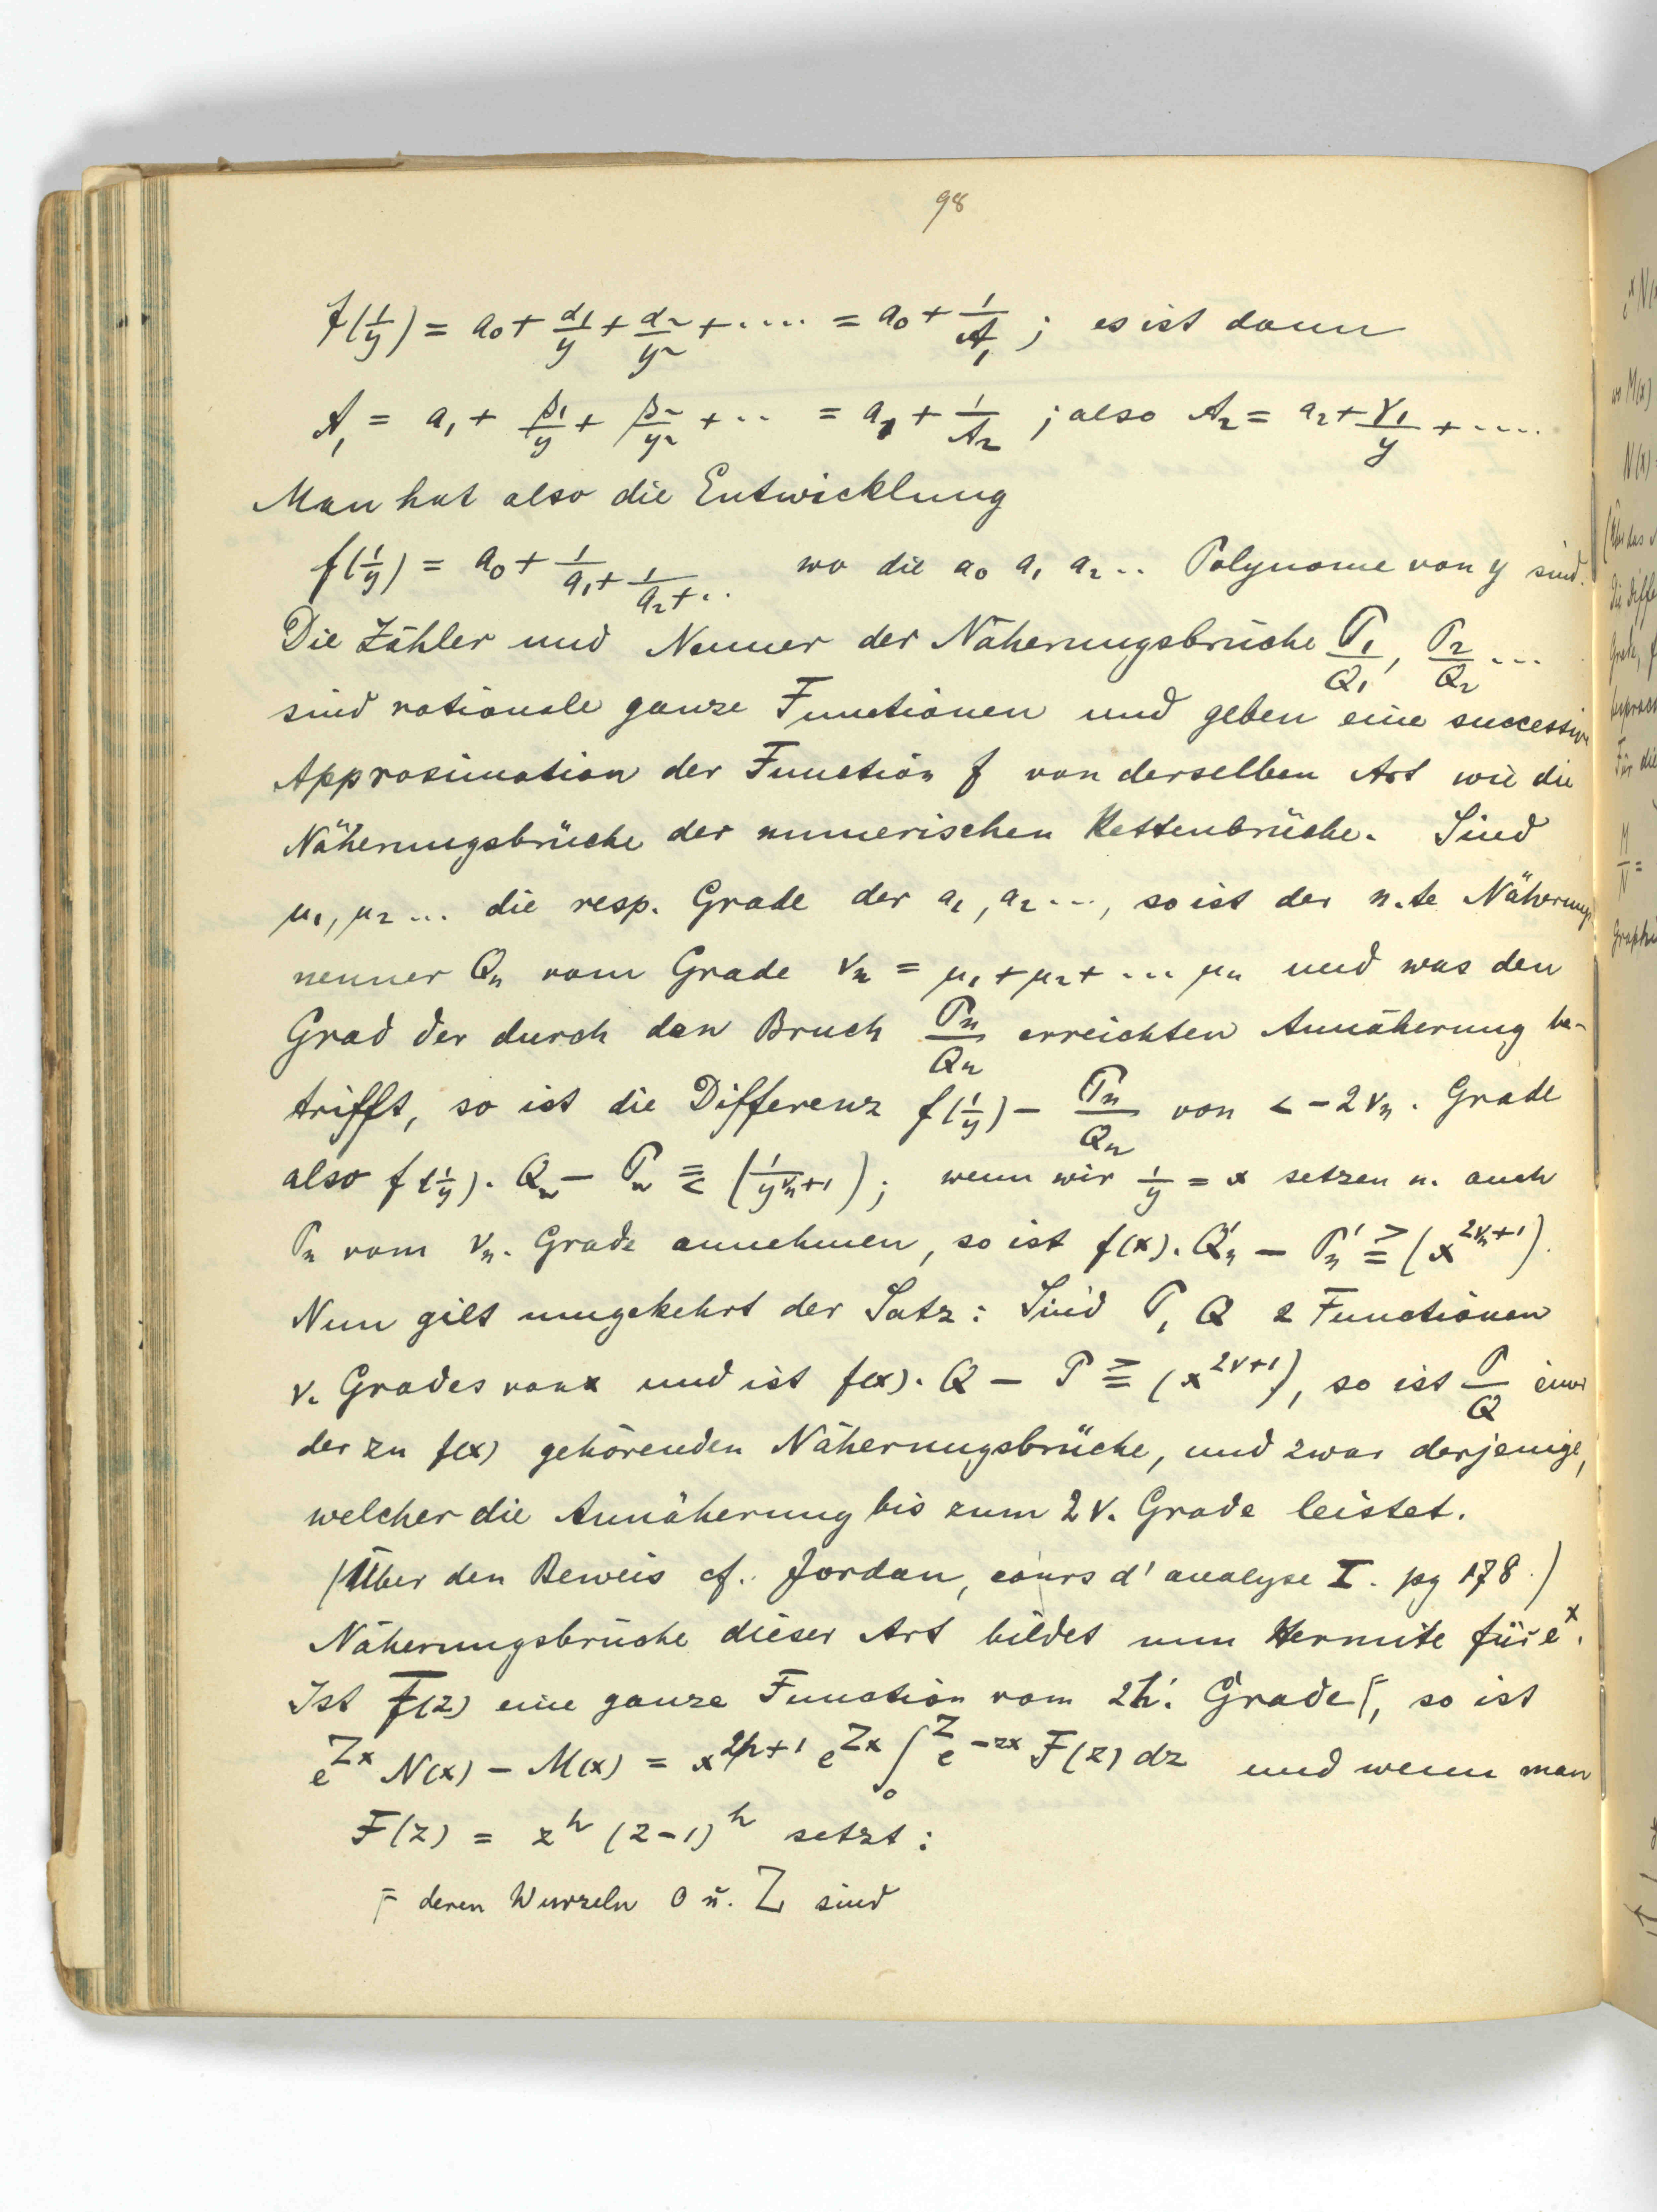 98
f(1/y) = a₀ + α₁/y + α₂/y² + .... = a₀ + 1/A₁ ; es ist dann
A₁ = a₁ + β₁/y + β₂/y² + .. = a₁ + 1/A₂ ; also A₂ = a₂ + γ₁/y + ....
Man hat also die Entwicklung
f(1/y) = a₀ + 1/(a₁ + 1/(a₂ + .. wo die a₀ a₁ a₂ .. Polynome von y sind.
Die Zähler und Nenner der Näherungsbrüche P₁/Q₁, P₂/Q₂ ...
sind rationale ganze Functionen und geben eine successive
Approximation der Function f von derselben Art wie die
Näherungsbrüche der numerischen Kettenbrüche. Sind
μ₁, μ₂ ... die resp. Grade der a₁, a₂ ..., so ist der n.te Näherungs
nenner Qₙ vom Grade νₙ = μ₁ + μ₂ + ... μₙ und was den
Grad der durch den Bruch Pₙ/Qₙ erreichten Annäherung be-
trifft, so ist die Differenz f(1/y) − Pₙ/Qₙ von < −2νₙ. Grade
also f(1/y). Qₙ − Pₙ ≦ (1/y^(νₙ+1)); wenn wir 1/y = x setzen u. auch
Pₙ vom νₙ. Grade annehmen, so ist f(x). Q'ₙ − P'ₙ ≧ (x^(2νₙ+1)).
Nun gilt umgekehrt der Satz: Sind P, Q 2 Functionen
ν. Grades von x und ist f(x). Q − P ≧ (x^(2ν+1)), so ist P/Q einer
der zu f(x) gehörenden Näherungsbrüche, und zwar derjenige,
welcher die Annäherung bis zum 2ν. Grade leistet.
(Über den Beweis cf. Jordan, cours d'analyse I. pg 178.)
Näherungsbrüche dieser Art bildet nun Hermite für eˣ.
Ist F(z) eine ganze Function vom 2h. Grade⌈, so ist
e^(Zx) N(x) − M(x) = x^(2h+1) e^(Zx) ∫₀^Z e^(−zx) F(z) dz und wenn man
F(z) = z^h (z−1)^h setzt:
⌈ deren Wurzeln 0 u. Z sind